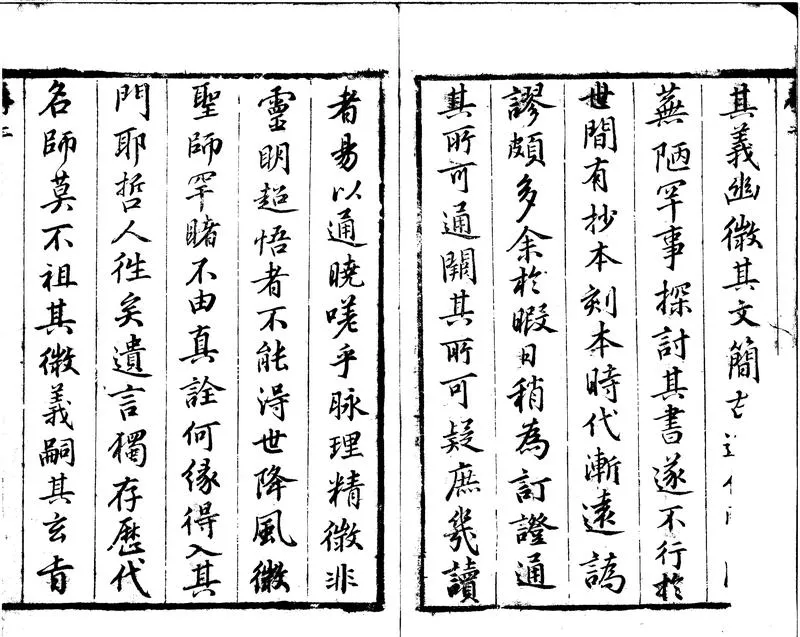 其義幽微其文簡古近代
蕪陋罕事探討其書遂不行於
世間有抄本刻本時代漸遠譌
謬頗多余於暇日稍為訂證通
其所可通闕其所可疑庶幾讀
者易以通曉嗟乎脉理精微非
靈明超悟者不能得世降風微
聖師罕睹不由真詮何緣得入其
門耶哲人徃矣遺言獨存歷代
名師莫不祖其微義嗣其玄旨